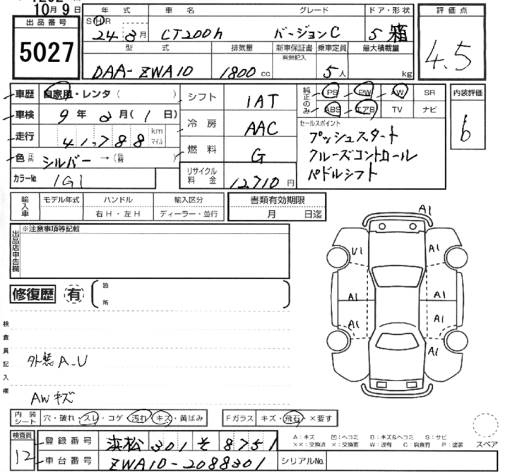 10月9日
出品番号
5027
年式 車名 グレード ドア・形状
24年 2月 CT200h バージョンC 5 箱
型式 排気量 新車保証書 有無記入 乗車定員 最大積載量
DAA-ZWA10 1800cc 5人 kg
評価点
4.5
車歴 自家用・レンタ ( )
車検 9年 2月 (1日)
走行 41,788 km マイル
色 シルバー → ( )
カラーNo 1G1
シフト 1AT
冷房 AAC
燃料 G
リサイクル料金 12,710円
純正のみ PS PW AW SR
ABS エアB TV ナビ
セールスポイント
プッシュスタート
クルーズコントロール
パドルシフト
内装評価
6
輸入車 モデル年式 ハンドル 輸入区分
右H・左H ディーラー・並行
書類有効期限
月 日迄
出品店申告欄 ※注意事項等記載
修復歴 有 箇所
検査員記入欄
外装A.U
AWキズ
A1
U1 A1
A1 A1
A1 A1
A1
内装シート 穴・破れ・スレ・コゲ・汚れ・キズ・黄ばみ
Fガラス キズ・飛石・×要す
検査員 12
登録番号 浜松 301 そ 8751
車台番号 ZWA10-2088301
シリアルNo.
スペア